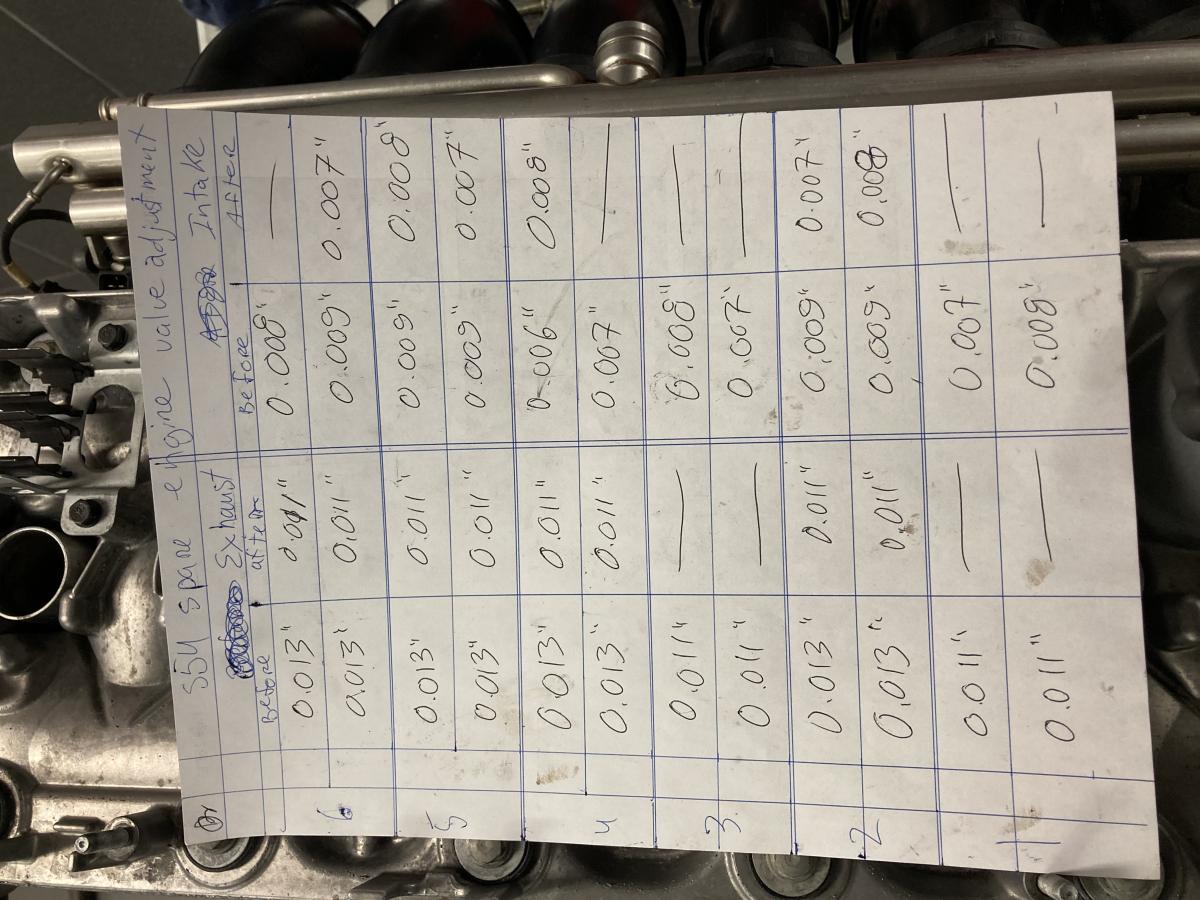 S54 spare engine valve adjustment
Exhaust Intake
Before after Before After
0.013" 0.011" 0.008" —
6 0.013" 0.011" 0.009" 0.007"
0.013" 0.011" 0.009" 0.008"
5 0.013" 0.011" 0.009" 0.007"
0.013" 0.011" 0.006" 0.008"
4 0.013" 0.011" 0.007" —
0.011" — 0.008" —
3 0.011" — 0.007" —
0.013" 0.011" 0.009" 0.007"
2 0.013" 0.011" 0.009" 0.008
0.011" — 0.007" —
1 0.011" — 0.008" —